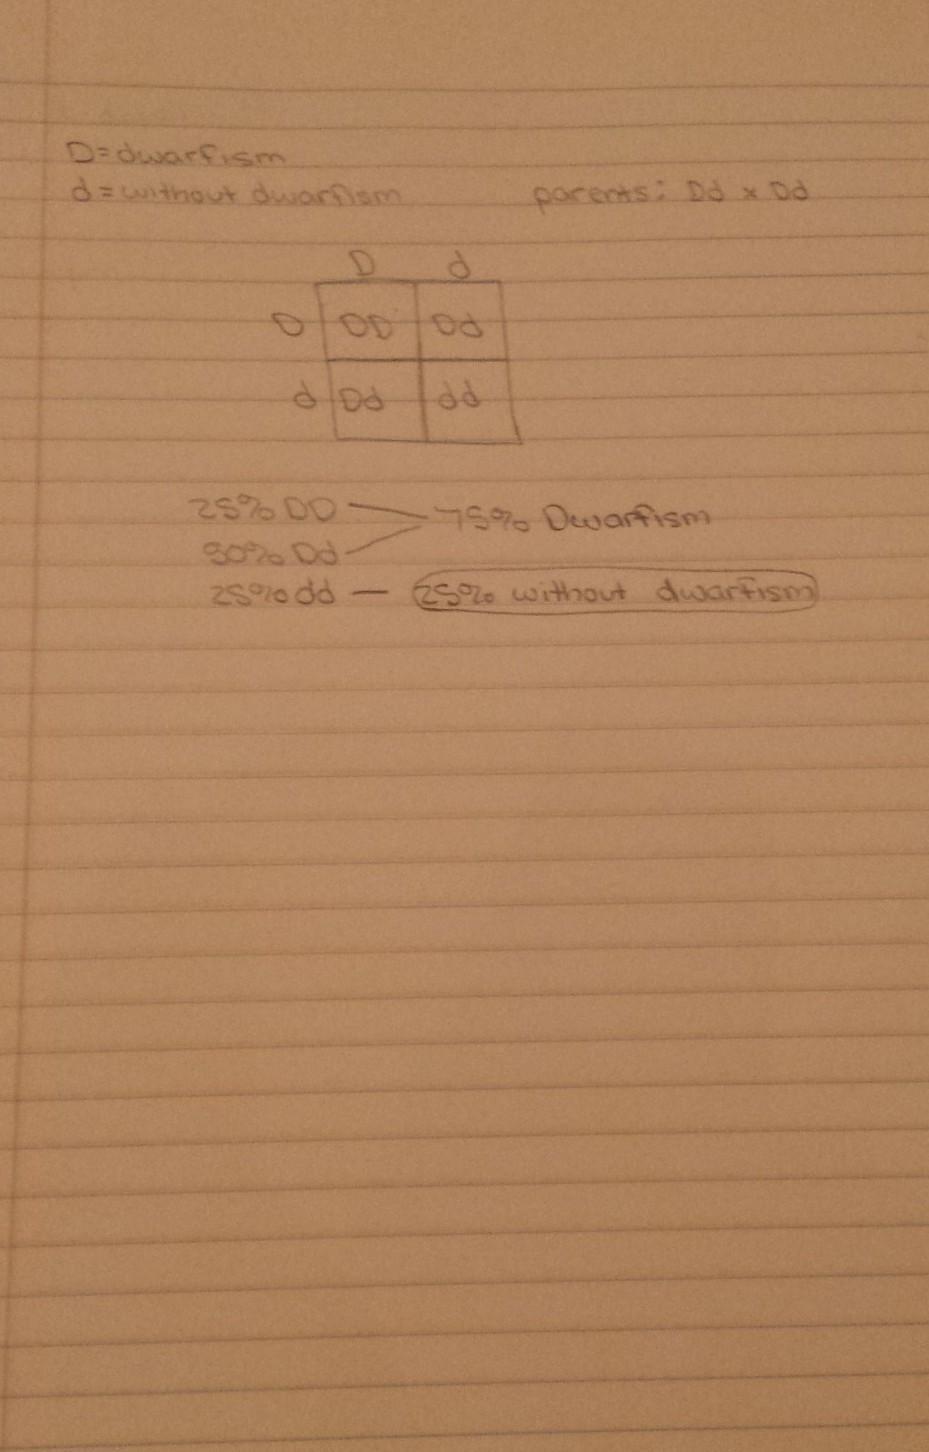 D=dwarfism
d=without dwarfism parents: Dd x Dd
D d
D DD Dd
d Dd dd
25% DD 75% Dwarfism
50% Dd
25% dd — 25% without dwarfism